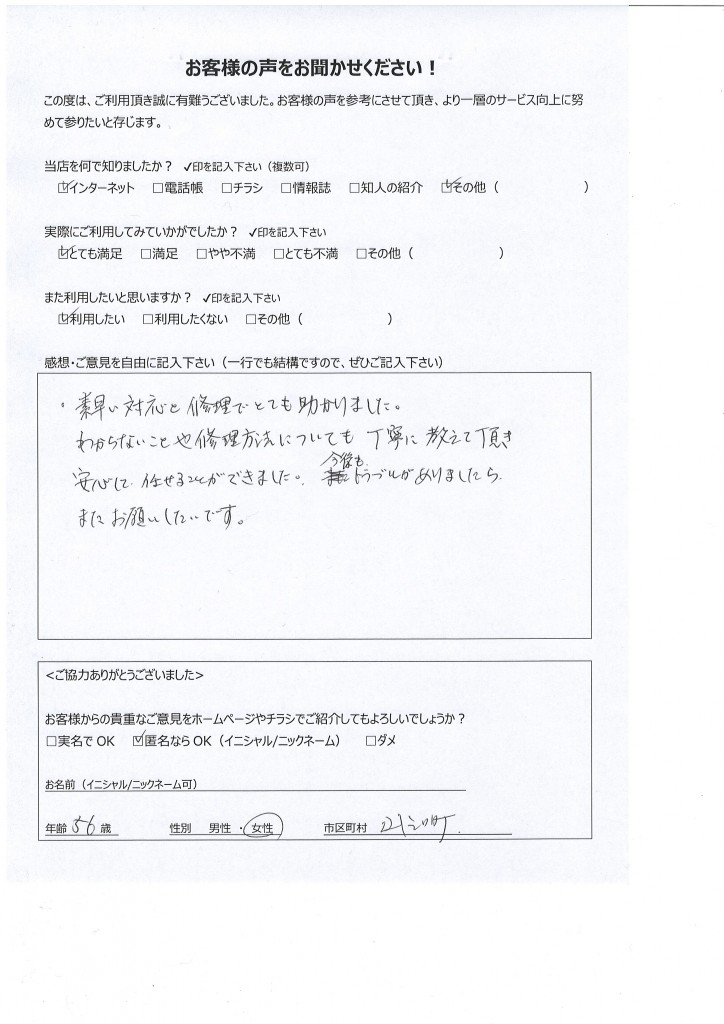 お客様の声をお聞かせください！
この度は、ご利用頂き誠に有難うございました。お客様の声を参考にさせて頂き、より一層のサービス向上に努
めて参りたいと存じます。
当店を何で知りましたか？ ✓印を記入下さい（複数可）
☑インターネット □電話帳 □チラシ □情報誌 □知人の紹介 ☑その他（ ）
実際にご利用してみていかがでしたか？ ✓印を記入下さい
☑とても満足 □満足 □やや不満 □とても不満 □その他（ ）
また利用したいと思いますか？ ✓印を記入下さい
☑利用したい □利用したくない □その他（ ）
感想・ご意見を自由に記入下さい（一行でも結構ですので、ぜひご記入下さい）
・素早い対応と修理でとても助かりました。
わからないことや修理方法についても丁寧に教えて頂き
安心して任せることができました。今後もトラブルがありましたら
またお願いしたいです。
<ご協力ありがとうございました>
お客様からの貴重なご意見をホームページやチラシでご紹介してもよろしいでしょうか？
□実名でOK ☑匿名ならOK（イニシャル/ニックネーム） □ダメ
お名前（イニシャル/ニックネーム可）
年齢 56 歳 性別 男性・女性 市区町村